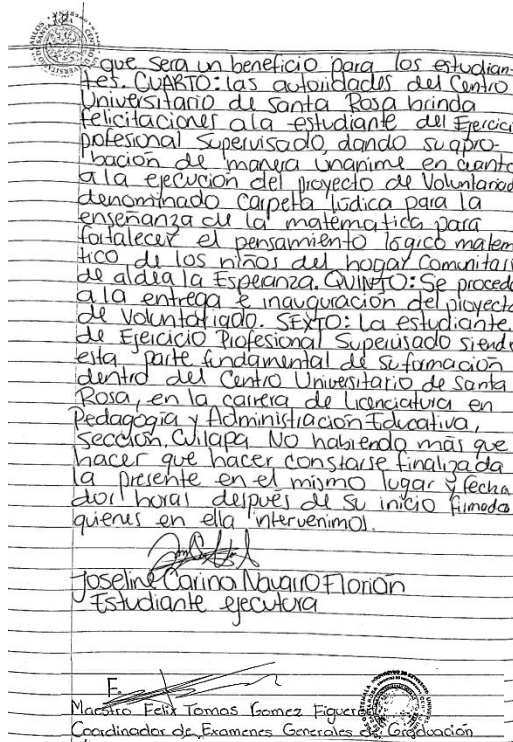 que sera un beneficio para los estudian-
tes. CUARTO: las autoridades del Centro
Universitario de Santa Rosa brinda
felicitaciones a la estudiante del Ejercici
profesional Supervisado, dando su apro-
bación de manera unanime en cuanto
a la ejecución del proyecto de Voluntariad
denominado Carpeta lúdica para la
enseñanza de la matemática para
fortalecer el pensamiento lógico matem
tico de los niños del hogar Comunitari
de aldea la Esperanza. QUINTO: Se procede
a la entrega e inauguración del proyecto
de Voluntariado. SEXTO: La estudiante
de Ejercicio Profesional Supervisado siendo
esta parte fundamental de su formación
dentro del Centro Universitario de Santa
Rosa, en la carrera de Licenciatura en
Pedagogía y Administración Educativa,
Sección, Cuilapa. No habiendo más que
hacer que hacer constarse finalizada
la presente en el mismo lugar y fecha
dos horas después de su inicio firmada
quienes en ella intervenimos.
Joseline Carina Navarro Florián
Estudiante ejecutora
F.
Maestro Felix Tomas Gomez Figuer
Coordinador de Examenes Generales de Graduación